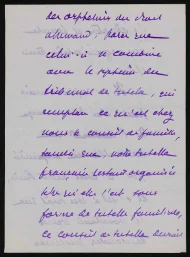 des orphelins du droit
allemand; parce que
celui-ci se combine
avec le système du
tribunal de tutelle, qui
remplace ce qu'est chez
nous le conseil de famille,
tandis que notre tutelle
française étant organisée
l'est sous
forme de tutelle familiale,
ce conseil de tutelle